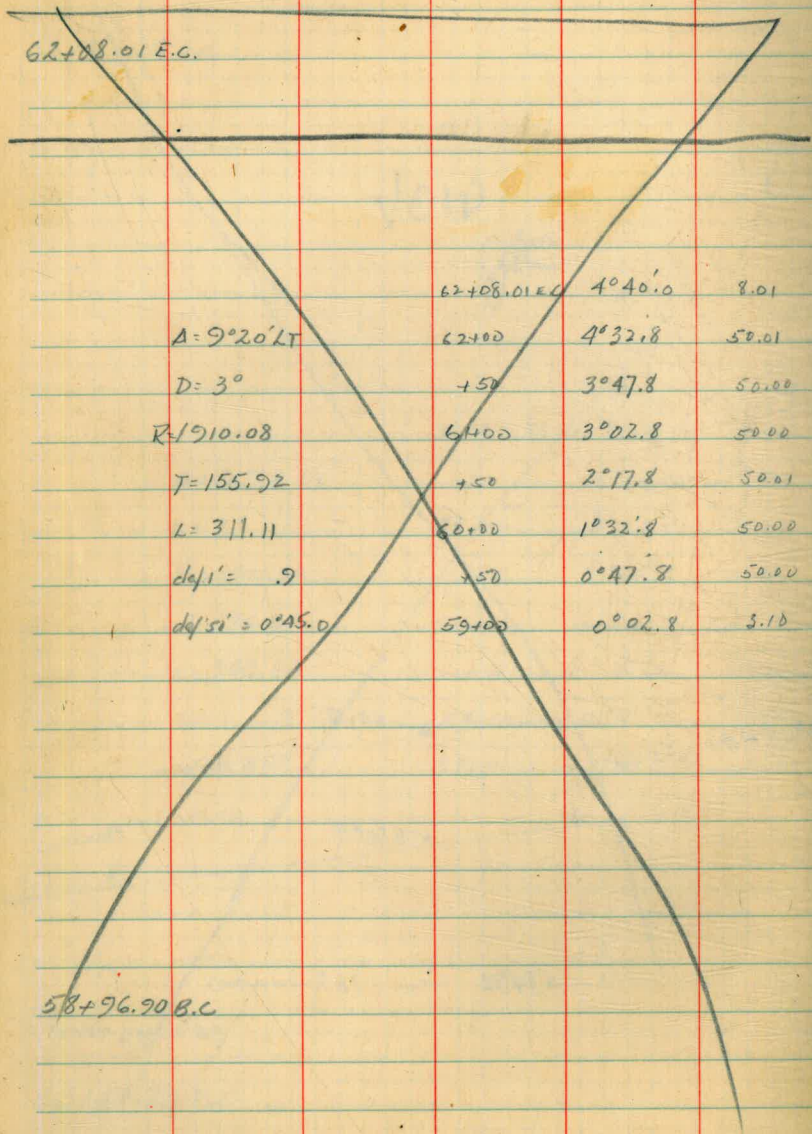 62+08.01 E.C.
62+08.01 EC 4°40'.0 8.01
Δ=9°20' LT 62+00 4°32'.8 50.01
D=3° +50 3°47.8 50.00
R=1910.08 61+00 3°02.8 50.00
T=155.92 +50 2°17.8 50.01
L=311.11 60+00 1°32'.8 50.00
def 1'= .9 +50 0°47'.8 50.00
def 50'=0°45.0 59+00 0°02.8 3.10
58+96.90 B.C